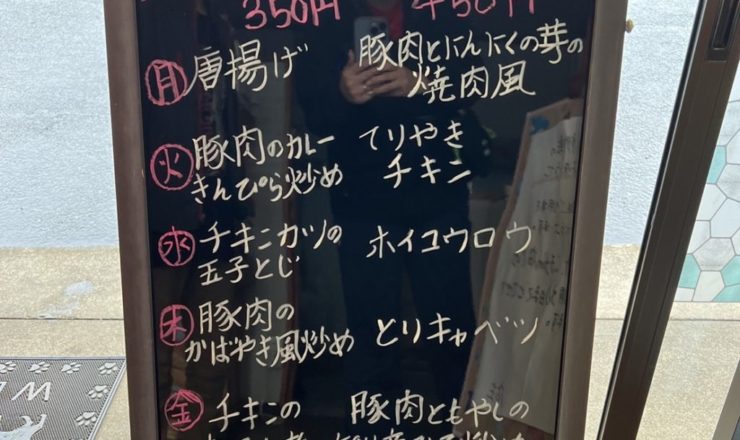 350円 450円
月 唐揚げ 豚肉とにんにくの芽の
焼肉風
火 豚肉のカレー てりやき
きんぴら炒め チキン
水 チキンカツの ホイコウロウ
玉子とじ
木 豚肉の とりキャベツ
かばやき風炒め
金 チキンの 豚肉ともやしの